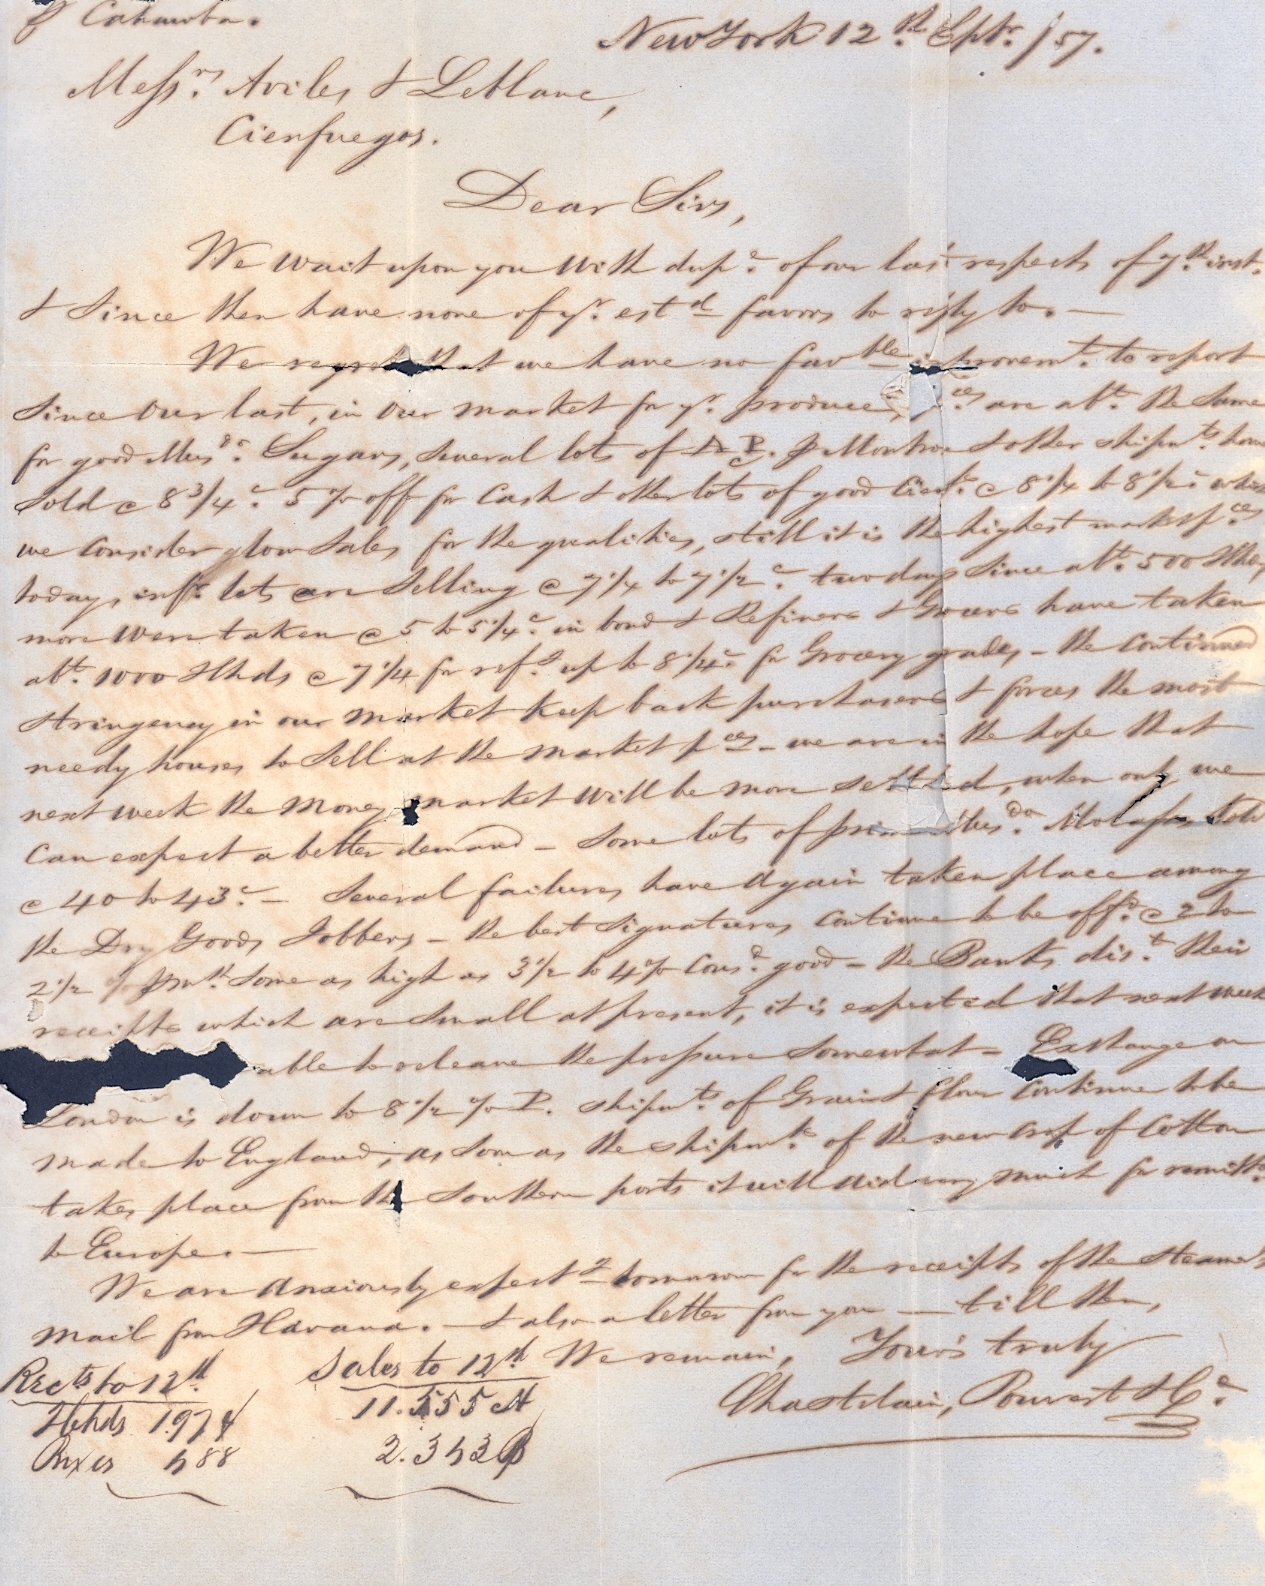 p Cahawba.
New York 12th. Septr. /57.
Messrs. Aviles & Leblanc,
Cienfuegos.
Dear Sirs,
We wait upon you with dupe. of our last respects of 7th. inst.
& Since then have none of yr. estd favors to reply to. —
We regret that we have no favble improvemt. to report
Since Our last, in Our market for yr. produce, ces are abt. the Same
for good Musdo. Sugars, Several lots of P. & other shipmts have
Sold @ 8 3/4c. 5 % off for Cash & other lots of good Cienfs. @ 8 1/4 to 8 1/2c which
we consider low Sales for the qualities, still it is the highest market pces
today, infr. lots are Selling @ 7 1/4 to 7 1/2c. two days Since abt. 500 Hhds
more were taken @ 5 to 5 1/4c. in bond & Refiners & Grocers have taken
abt. 1000 Hhds @ 7 1/4 for refg. up to 8 1/4c. for Grocery grades – the Continued
Stringency in our market keep back purchasers & forces the most
needy houses to Sell at the market pces – we are in the hope that
next week the Money market will be more settled, when only we
Can expect a better demand – Some lots of prime Musdo. Molasses Sold
@ 40 to 43c. – Several failures have again taken place among
the Dry Goods Jobbers – the best Signatures continue to be offd. @ 2 to
2 1/2 % p mth. Some as high as 3 1/2 to 4 % Consd. good – the Banks dist. their
receipts which are Small at present, it is expected that next week
able to releave the pressure Somewhat – Exchange on
London is down to 8 1/2 % P. shipmts. of Grain & flour Continue to be
made to England, as soon as the shipmts. of the new Crop of Cotton
takes place from the Southern ports it will aid very much for remittces.
to Europe. —
We are Anxiously expectg tomorrow for the receipts of the steamer's
mail from Havana. – & also a letter from you — till then,
We remain, Yours truly
Chastelain, Pouvert & Co.
Rects to 12th
Hhds 1974
Boxes 588
Sales to 12th
11.555 H
2.343 B